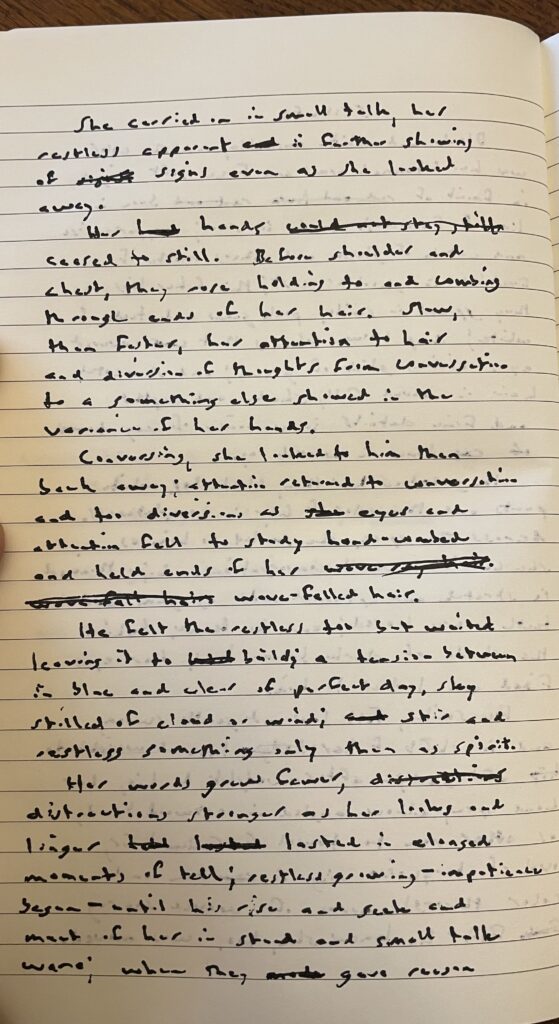 She carried on in small talk, her
restless apparent in further showing
of signs even as she looked
away.
Her hands
ceased to still. Before shoulder and
chest, they rose holding to and combing
through ends of her hair. Slow,
then faster, her attention to hair
and diversion of thoughts from conversation
to a something else showed in the
variance of her hands.
Conversing, she looked to him then
back away; attention returned to conversation
and too diversions as eyes and
attention fell to study hand-combed
and held ends of her
wave-felled hair.
He felt the restless too but waited
leaving it to build; a tension between
in blue and clear of perfect day, sky
stilled of cloud or wind; stir and
restless something only then as spirit.
Her words grew fewer,
distractions stronger as her looks and
linger lasted in
moments of tell; restless growing - impatience
began - until his rise and seek and
meet of her in stand and small talk
wane; when they gave reason